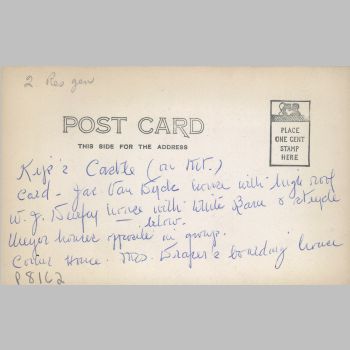 2. Res gen
POST CARD
THIS SIDE FOR THE ADDRESS
PLACE
ONE CENT
STAMP
HERE
Kip's Castle (on Mt.)
Card - Jas. Van Dyck house with high roof
W. J. house with White Barn &
below.
houses opposite in group.
House. Mrs. Draper's boarding house
P8162